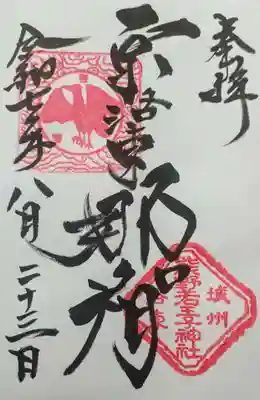 奉拝
京洛東那智
令和七年
八月二十三日
城州
熊野若王子神社
洛東